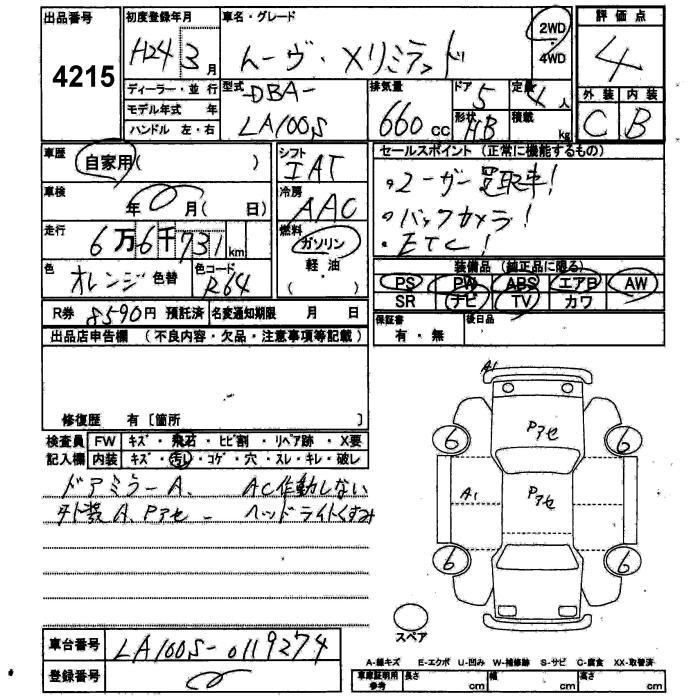 出品番号
4215
初度登録年月
H24 3月
車名・グレード
ムーヴ・Xリミテッド
2WD
・
4WD
評価点
4
外装 内装
C B
ディーラー・並行
モデル年式 年
ハンドル 左・右
型式
DBA-
LA100S
排気量
660 CC
ドア
5
定員
4人
形状
HB
積載
kg
車歴
自家用( )
車検
年 月( 日)
走行
6万6千731km
色
オレンジ 色替
色コード
R64
シフト
IAT
冷房
AAC
燃料
ガソリン
軽・油
( )
セールスポイント(正常に機能するもの)
・ユーザー買取車!
・バックカメラ!
・ETC!
装備品(純正品に限る)
PS PW ABS エアB AW
SR ナビ TV カワ
R券 8590円 預託済 名変通知期限 月 日
保証書
有・無
後日品
出品店申告欄(不良内容・欠品・注意事項等記載)
修復歴 有〔箇所 〕
検査員 FW キズ・飛石・ヒビ割・リペア跡・X要
記入欄 内装 キズ・汚レ・コゲ・穴・スレ・キレ・破レ
ドアミラーA. AC作動しない
外装A、Pアセ ヘッドライトくすみ
A1
Pアセ
6 6
A1 Pアセ
6 6
スペア
車台番号 LA100S-0119274
登録番号
A-線キズ E-エクボ U-凹み W-補修跡 S-サビ C-腐食 XX-取替済
車庫証明用
参考
長さ cm 幅 cm 高さ cm